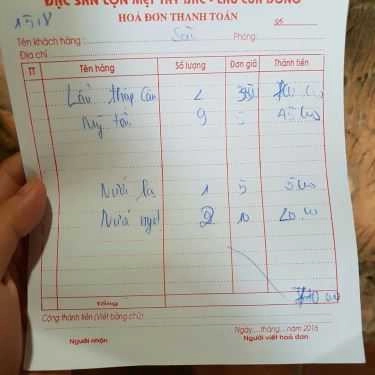 ĐẶC SẢN LỢN MẸT TÂY BẮC - LẨU CUA ĐỒNG
HOÁ ĐƠN THANH TOÁN
Tên khách hàng: Phòng:
Địa chỉ
TT Tên hàng Số lượng Đơn giá Thành tiền
Lẩu thập cẩm 2 350
Mỳ tôm 9 5
Nước lọc 1 5
Nước ngọt 2 10
Tổng
Cộng thành tiền (Viết bằng chữ):
Ngày....tháng... năm 2016
Người nhận Người viết hoá đơn